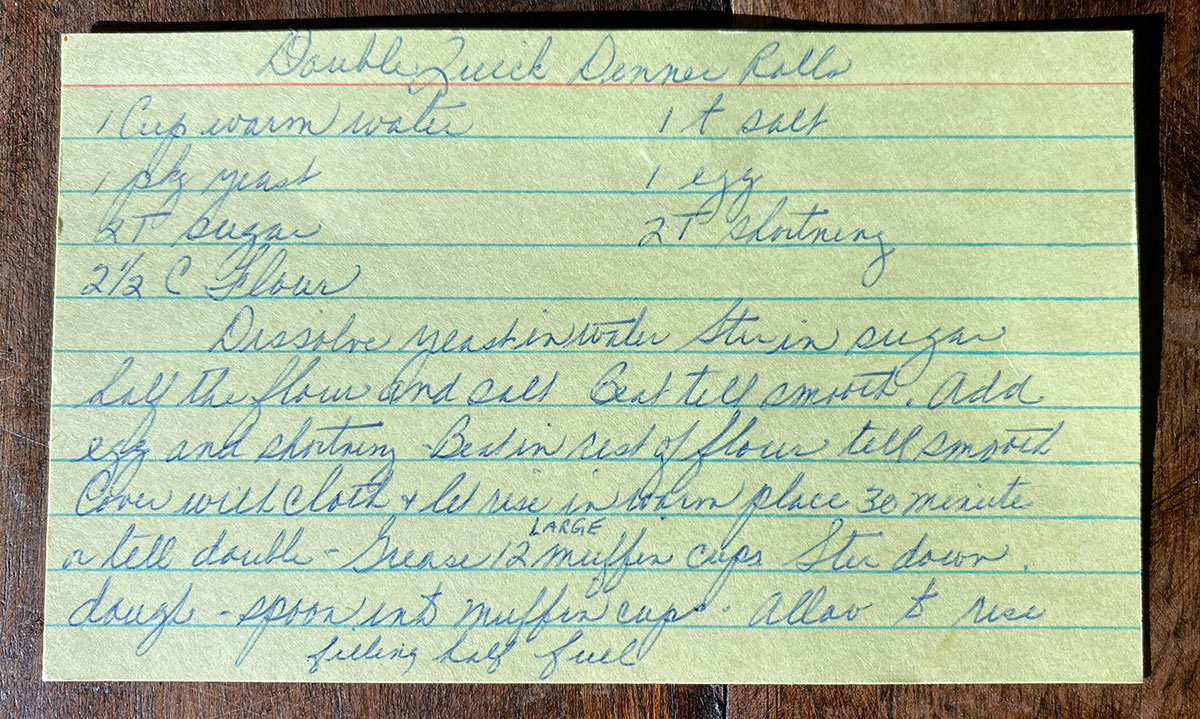 Double Quick Dinner Rolls
1 Cup warm water 1 t salt
1 pkg yeast 1 egg
2T sugar 2T shortning
2 1/2 C Flour
Dissolve yeast in water Stir in sugar
half the flour and salt Beat tell smooth. Add
egg and shortning - Beat in rest of flour tell smooth
Cover with cloth & let rise in warm place 30 minute
or tell double - Grease 12 LARGE muffin cups Stir down.
dough - spoon into muffin cups - Allow to rise
filling half full